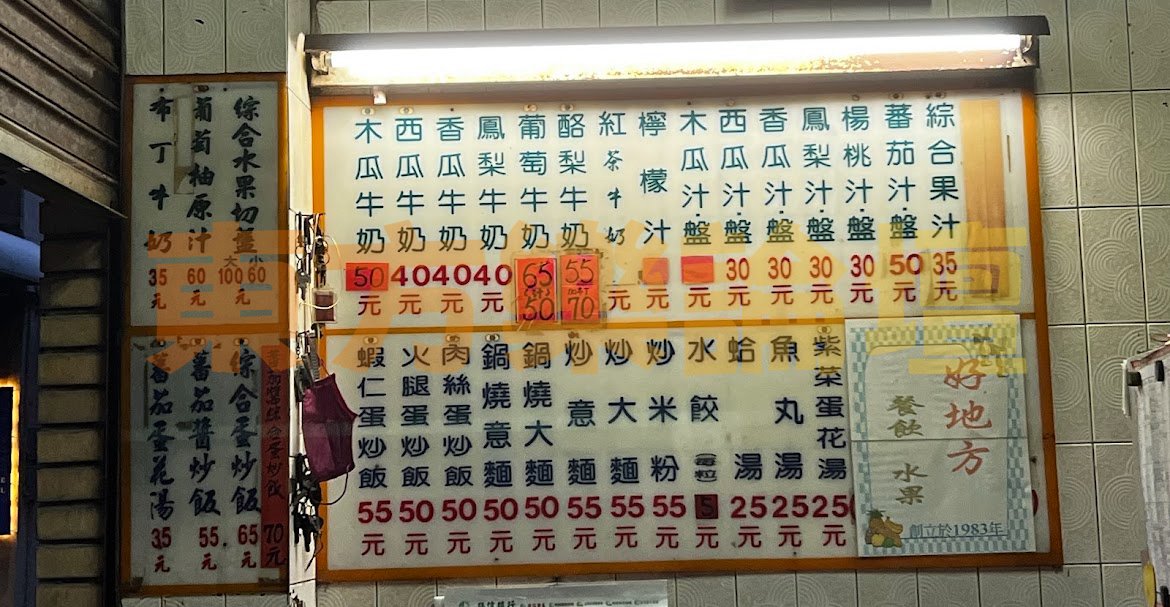 綜合果汁 35元
蕃茄汁.盤 50元
楊桃汁.盤 30元
鳳梨汁.盤 30元
香瓜汁.盤 30元
西瓜汁.盤 30元
木瓜汁.盤 元
檸檬汁 元
紅茶牛奶 元
酪梨牛奶 55 70
葡萄牛奶 65 50
鳳梨牛奶 40元
香瓜牛奶 40元
西瓜牛奶 40元
木瓜牛奶 50元
好地方
餐飲 水果
創立於1983年
紫菜蛋花湯 25元
魚丸湯 25元
蛤湯 25元
水餃 每粒 5元
炒米粉 55元
炒大麵 55元
炒意麵 55元
鍋燒大麵 50元
鍋燒意麵 50元
肉絲蛋炒飯 50元
火腿蛋炒飯 50元
蝦仁蛋炒飯 55元
綜合水果切盤 大100 小60元
葡萄柚原汁 60元
布丁牛奶 35元
蛋炒飯 70元
綜合蛋炒飯 65元
蕃茄醬炒飯 55元
蕃茄蛋花湯 35元